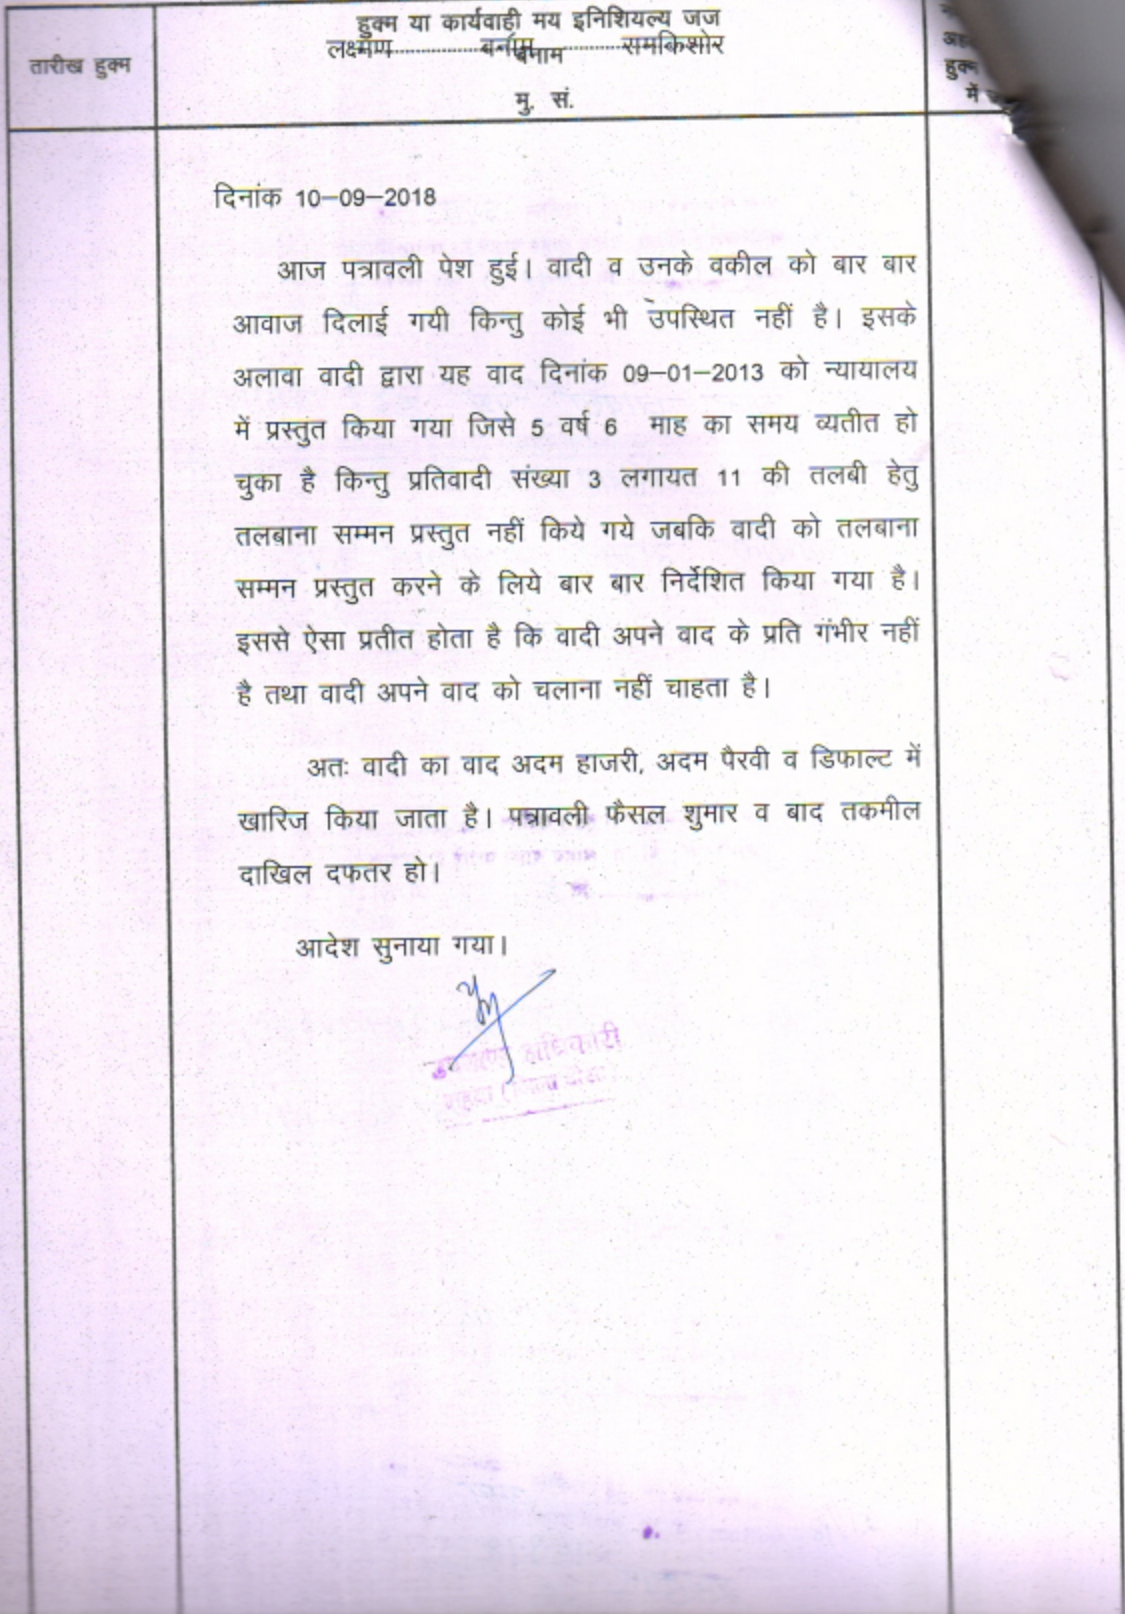 हुक्म या कार्यवाही मय इनिशियल्य जज
लक्ष्मण.................बनाम.................रामकिशोर
बनाम
तारीख हुक्म
हुक्म
में
मु. सं.
दिनांक 10–09–2018
आज पत्रावली पेश हुई। वादी व उनके वकील को बार बार
आवाज दिलाई गयी किन्तु कोई भी उपस्थित नहीं है। इसके
अलावा वादी द्वारा यह वाद दिनांक 09–01–2013 को न्यायालय
में प्रस्तुत किया गया जिसे 5 वर्ष 6 माह का समय व्यतीत हो
चुका है किन्तु प्रतिवादी संख्या 3 लगायत 11 की तलबी हेतु
तलबाना सम्मन प्रस्तुत नहीं किये गये जबकि वादी को तलबाना
सम्मन प्रस्तुत करने के लिये बार बार निर्देशित किया गया है।
इससे ऐसा प्रतीत होता है कि वादी अपने वाद के प्रति गंभीर नहीं
है तथा वादी अपने वाद को चलाना नहीं चाहता है।
अतः वादी का वाद अदम हाजरी, अदम पैरवी व डिफाल्ट में
खारिज किया जाता है। पत्रावली फैसल शुमार व बाद तकमील
दाखिल दफतर हो।
आदेश सुनाया गया।
अधिकारी